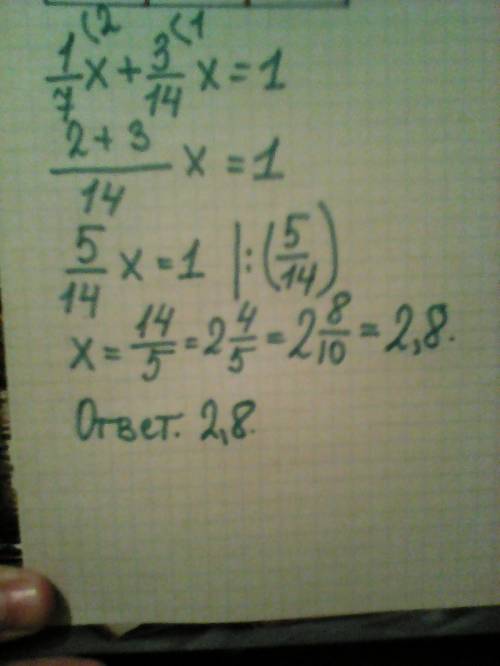 (2 (1
1/7 x + 3/14 x = 1
2 + 3/14 x = 1
5/14 x = 1 |:(5/14)
x = 14/5 = 2 4/5 = 2 8/10 = 2,8.
Ответ. 2,8.